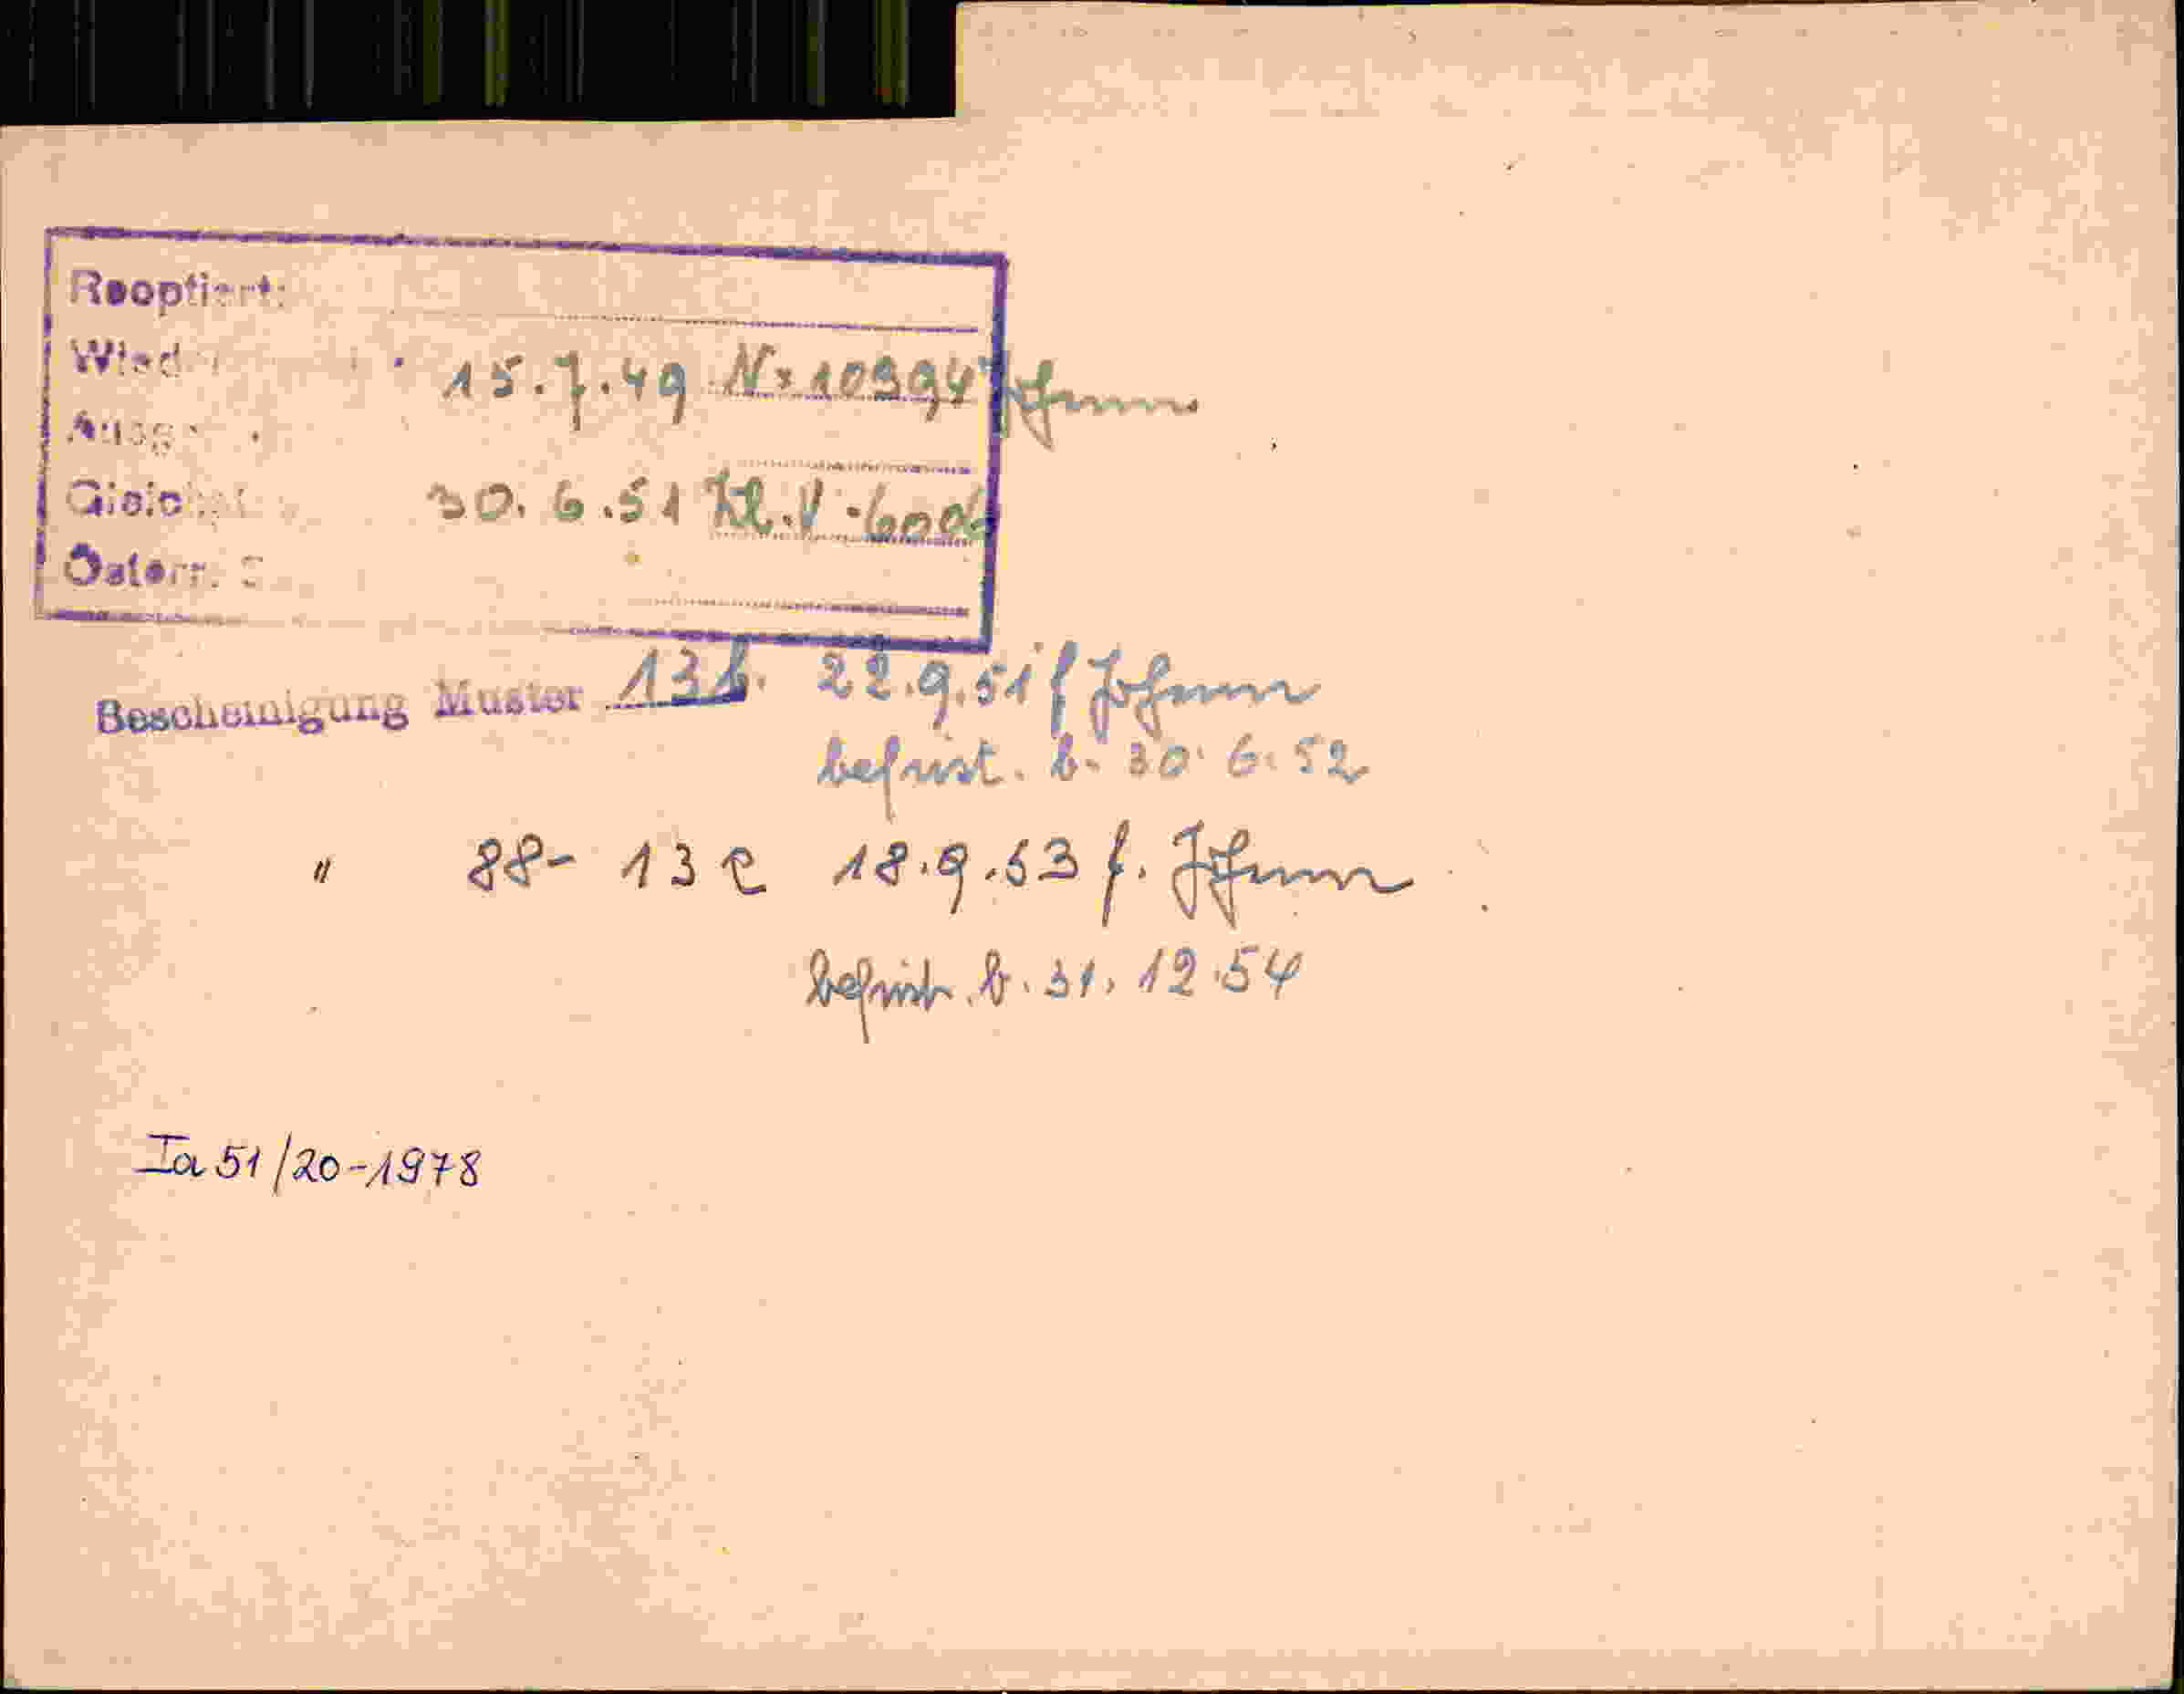 Reoptiert:
15.7.49 Nr 10994
30.6.51 Zl. V-6006
Österr. S
Bescheinigung Muster 13b. 22.9.51 f
befrist. b. 30.6.52
" 88- 13 e 18.9.53 f.
befrist. b. 31.12.54
Ia 51/20-1978